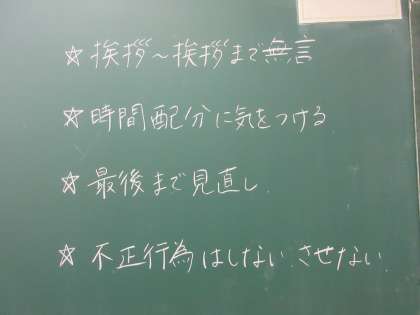 ☆挨拶～挨拶まで無言
☆時間配分に気をつける
☆最後まで見直し.
☆不正行為はしない.させない.